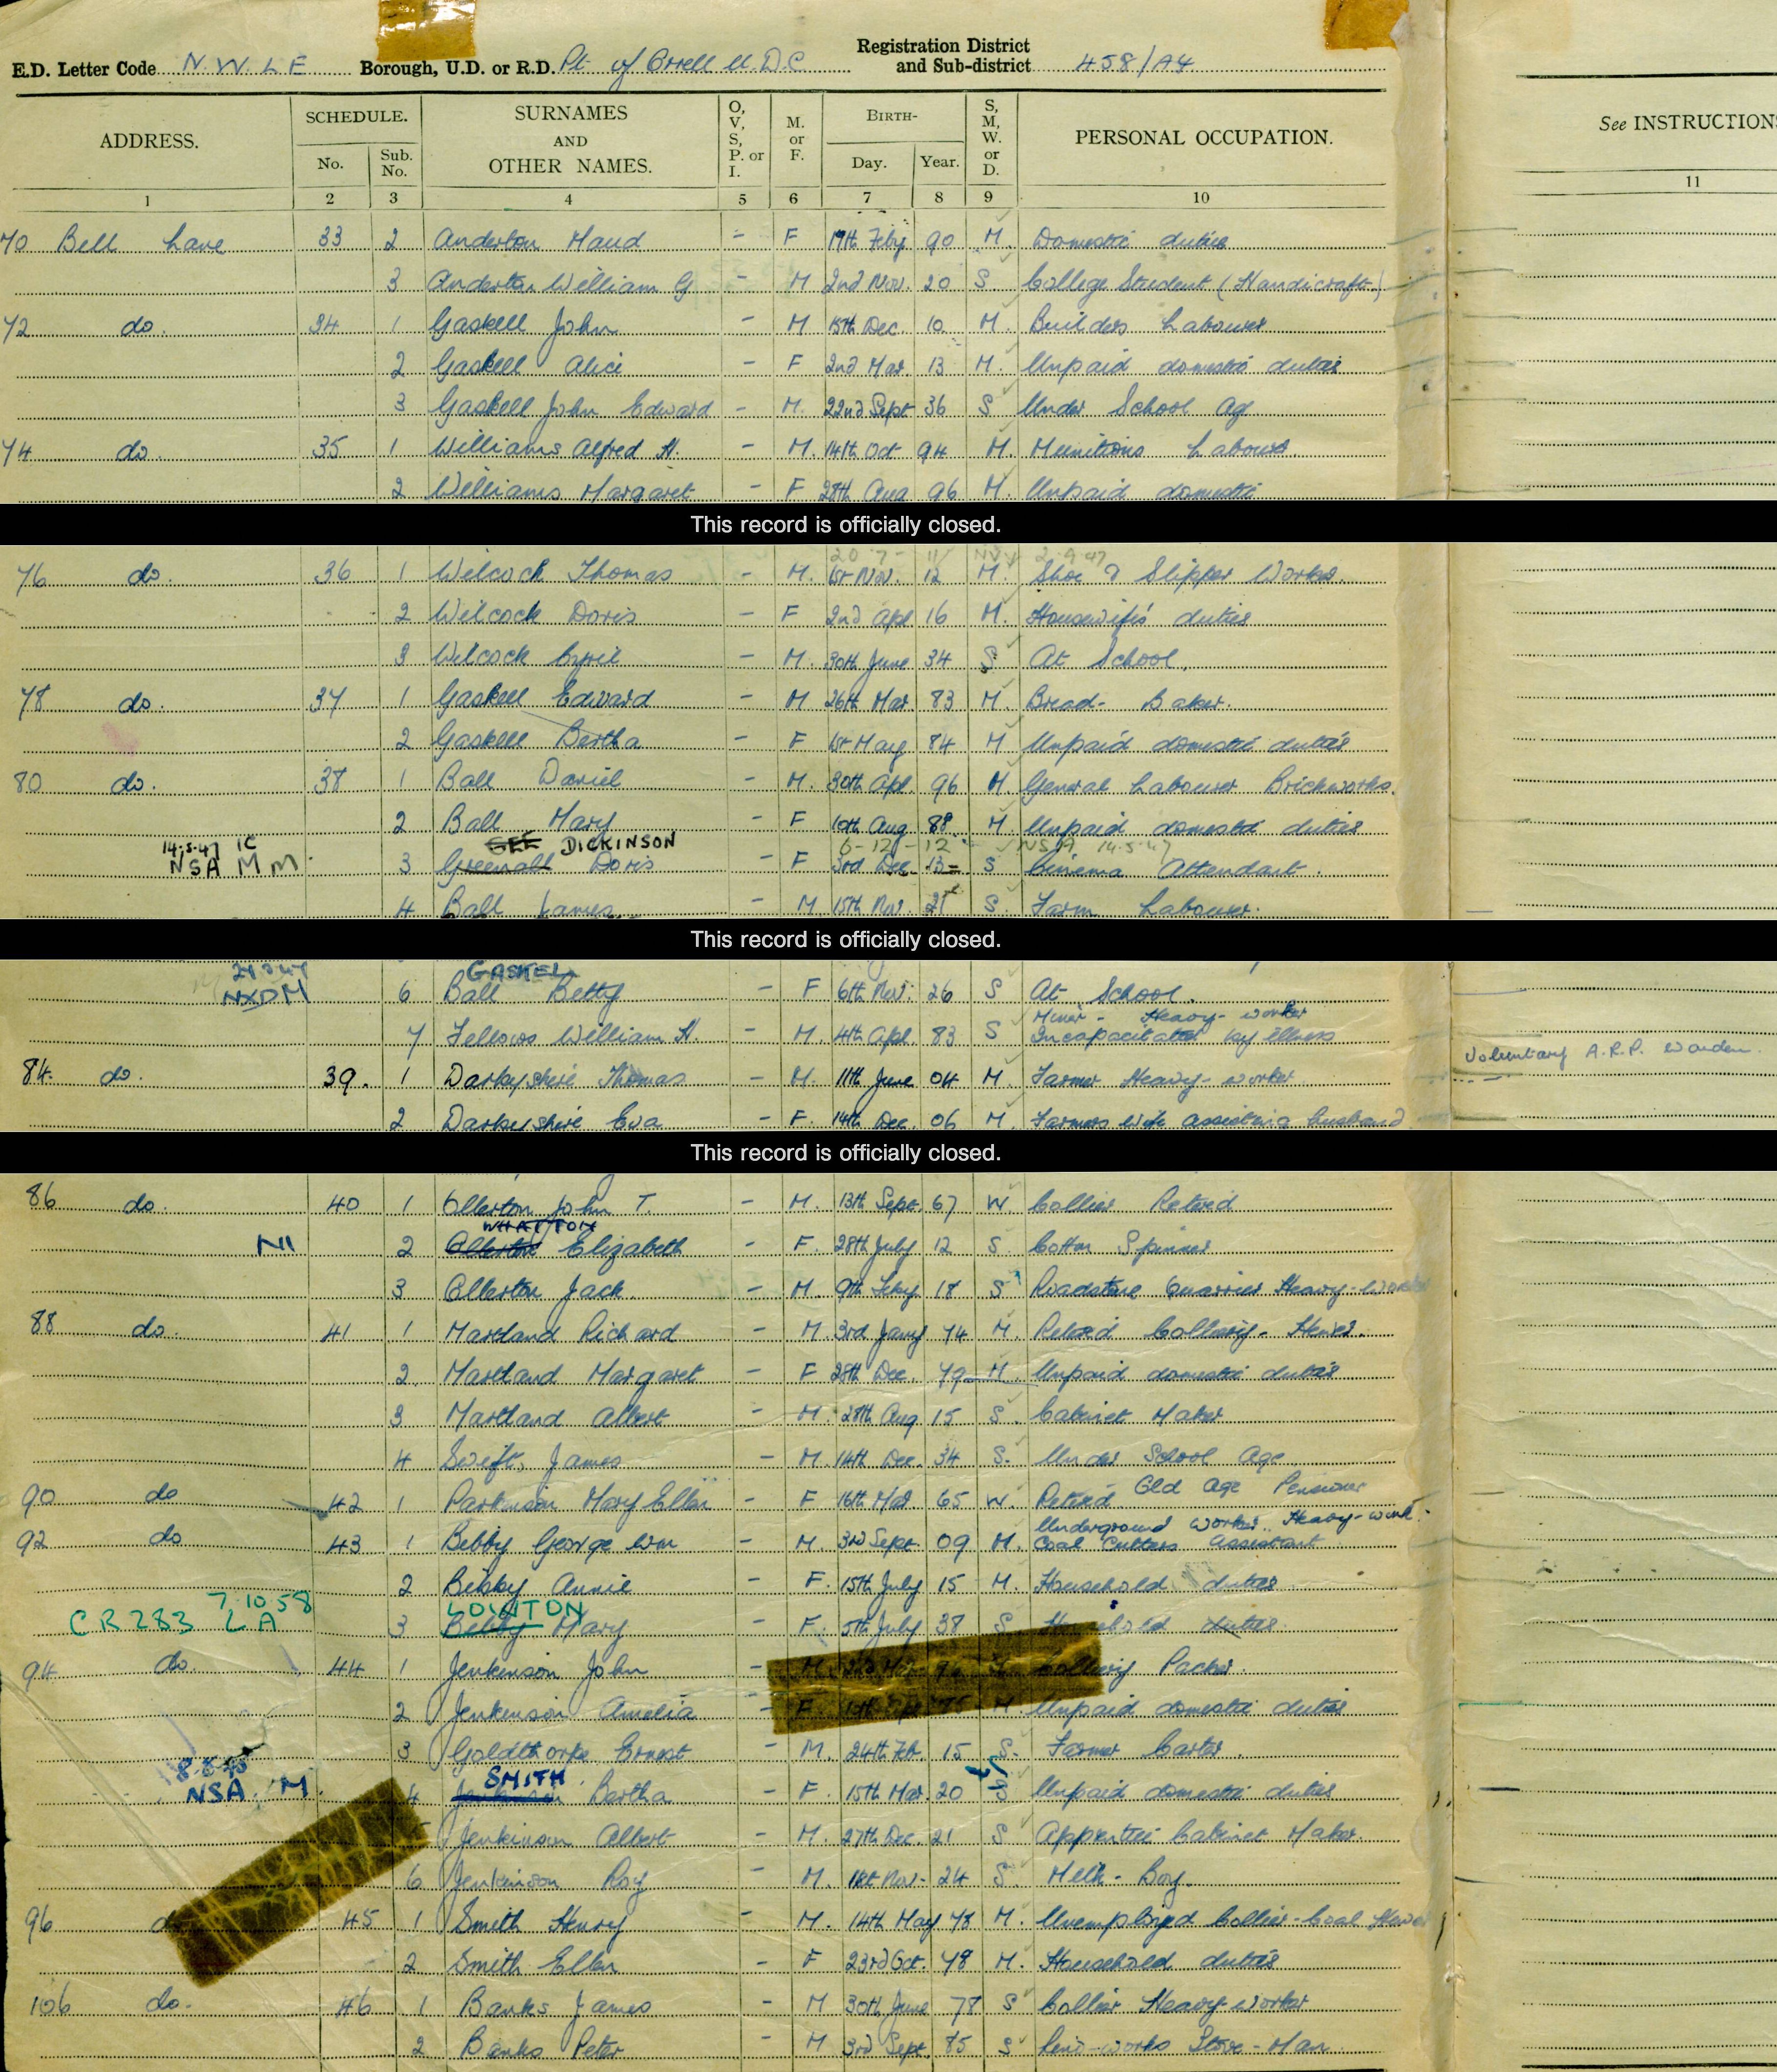 E.D. Letter Code N.W.L.E Borough, U.D. or R.D. Pt. of Orrell U.D.C Registration District and Sub-district 458/A4
ADDRESS. SCHEDULE. No. Sub. No. SURNAMES AND OTHER NAMES. O, V, S, P. or I. M. or F. BIRTH- Day. Year. S, M, W. or D. PERSONAL OCCUPATION. See INSTRUCTION
1 2 3 4 5 6 7 8 9 10 11
70 Bell Lane 33 2 Anderton Maud - F 17th Feby. 90 M. Domestic duties
3 Anderton William G - M 2nd Nov. 20 S College Student (Handicraft)
72 do. 34 1 Gaskell John - M 15th Dec. 10 M. Builders Labourer
2 Gaskell Alice - F 2nd Mar. 13 M. Unpaid domestic duties
3 Gaskell John Edward - M. 22nd Sept 36 S Under School Age
74 do. 35 1 Williams Alfred H. - M. 14th Oct 94 M. Munitions Labourer
2 Williams Margaret - F 28th Aug 96 M. Unpaid domestic
This record is officially closed.
20-7- 11 NVY 2.9.47
76 do. 36 1 Wilcock Thomas - M. 1st Nov. 12 M. Shoe & Slipper Works.
2 Wilcock Doris - F 2nd Apl 16 M. Housewife's duties
3 Wilcock Cyril - M. 30th June 34 S At School.
78 do. 37 1 Gaskell Edward - M 26th Mar. 83 M. Bread- Baker.
2 Gaskell Bertha - F 1st May 84 M Unpaid domestic duties
80 do. 38 1 Ball Daniel - M. 30th Apl. 96 M General Labourer Brickworks.
2 Ball Mary - F 10th Aug 88 M. Unpaid domestic duties
14.5.47 IC SEE DICKINSON 6-12-12 NSA 14.5.47
NSA M M 3 Greenall Doris - F 3rd Dec 13 S Cinema Attendant.
4 Ball James - M 15th Nov. 21 S. Farm Labourer.
This record is officially closed.
GASKELL
NXDM 6 Ball Betty - F 6th Nov. 26 S At School.
Miner - Heavy-worker
7 Fellows William H. - M. 4th Apl. 83 S Incapacitated by illness
Voluntary A.R.P. Warden
84. do. 39. 1 Darbyshire Thomas - M. 11th June 04 M. Farmer Heavy-worker
2 Darbyshire Eva - F. 14th Dec. 06 M. Farmers wife assisting husband
This record is officially closed.
86 do. 40 1 Ollerton John T. - M. 13th Sept. 67 W. Collier Retired
WHATTON
NI 2 Ollerton Elizabeth - F. 28th July 12 S. Cotton Spinner
3 Ollerton Jack. - M. 9th Feby 18 S Roadstone Quarrier Heavy-worker
88 do. 41 1 Martland Richard - M. 3rd Jany 74 M. Retired Colliery- Hewer.
2. Martland Margaret - F 28th Dec. 79 M. Unpaid domestic duties
3 Martland Albert - M. 28th Aug 15 S. Cabinet Maker
4 Swift, James - M. 14th Dec. 34 S. Under School Age
90 do 42 1 Parkinson Mary Ellen - F 16th Mar. 65 W. Retired Old Age Pensioner
Underground Worker. Heavy-work.
92 do 43 1 Bebby George Wm - M. 3rd Sept. 09 M. Coal Cutters Assistant
2 Bebby Annie - F. 15th July 15 M. Household duties
7.10.58 LOWTON
CR283 LA 3 Bebby Mary - F. 5th July 38 S. Household duties
94 do. 44 1 Jenkinson John - M. Colliery Packer.
2 Jenkinson Amelia - F. M. Unpaid domestic duties
3 Goldthorpe Ernest - M. 24th Feb. 15 S. Farmer Carter.
SMITH
NSA. M. 4 Bertha - F. 15th Mar. 20 S Unpaid domestic duties
Jenkinson Albert - M. 27th Dec. 21 S Apprentice Cabinet Maker.
6 Jenkinson Roy - M. 1st Nov. 24 S. Milk-Boy.
96 45 1 Smith Henry - M. 14th May 78 M. Unemployed Collier-Coal Hewer
2 Smith Ellen - F 23rd Oct. 78 M. Household duties
106 do. 46 1 Banks James - M 30th June 78 S Collier Heavy-worker
2 Banks Peter - M 3rd Sept. 85 S Stove-Man